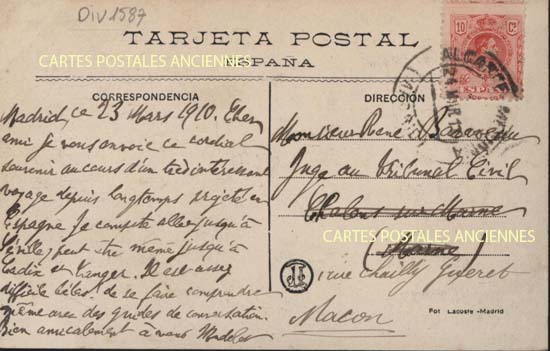 Div 1587
10 Cs
TARJETA POSTAL
CARTES POSTALES ANCIENNES
ESPAÑA
CORRESPONDENCIA
DIRECCIÓN
Madrid, ce 23 Mars 1910. Cher
ami je vous envoie ce cordial
souvenir au cours d'un très intéressant
voyage depuis longtemps projeté en
Espagne je compte aller jusqu'à
Séville, peut être même jusqu'à
Cadix et Tanger. Il est assez
difficile de se faire comprendre
même avec des guides de conversation.
Bien amicalement à vous
Monsieur René
Juge au Tribunal Civil
Chalons sur Marne
(Marne)
CARTES POSTALES ANCIENNES
rue
Macon
Fot Lacoste-Madrid